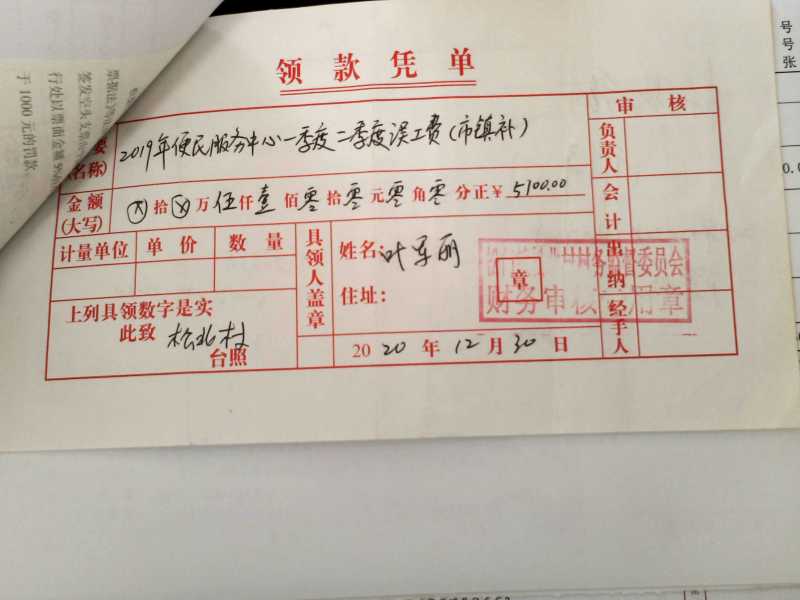 领款凭单
审核
要
(名称)
2019年便民服务中心一季度二季度误工费(市镇补)
负责人
金额
(大写)
⊗拾⊗万伍仟壹佰零拾零元零角零分正¥5100.00
会计
计量单位 单价 数量
具领人盖章
姓名:叶军丽
住址:
章
村村务监督委员会
财务审核专用章
出纳
经手人
上列具领数字是实
此致 松北村
台照
2020年12月30日
票据法》
签发空头支票
行处以票面金额
于1000元的罚款。
号
号
张